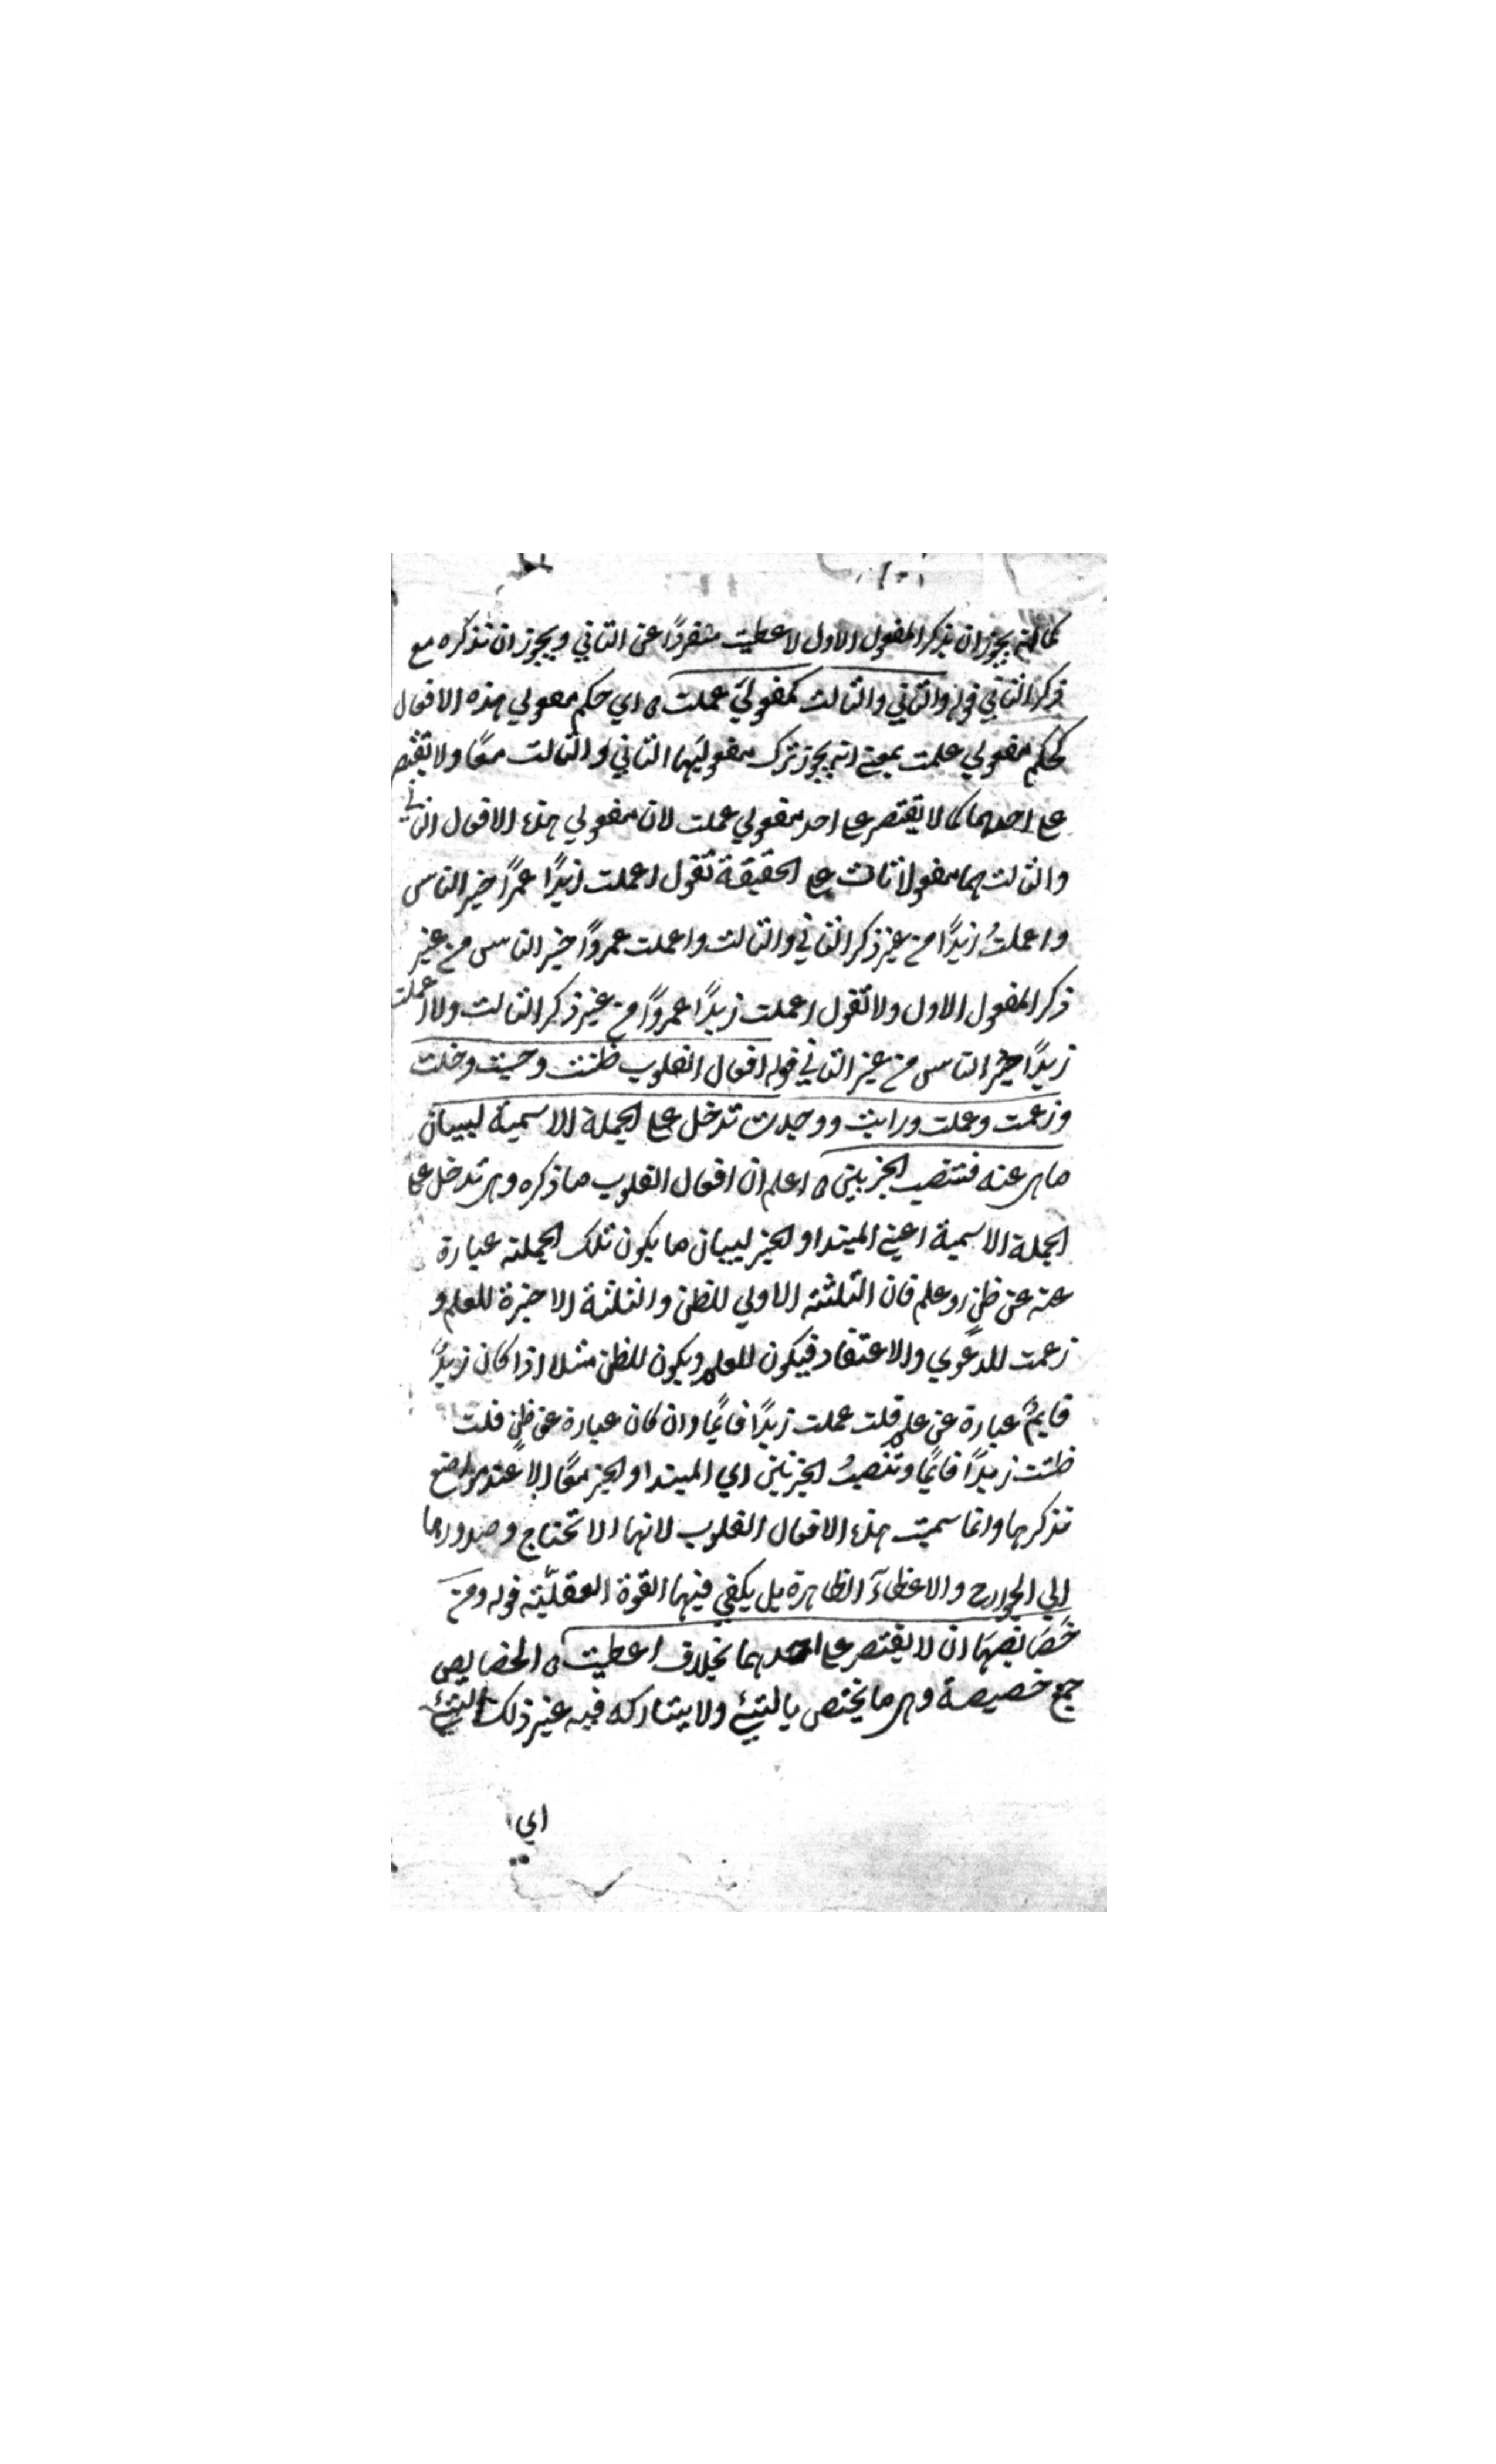 كما انه يجوز ان يذكر المفعول الاول لاعطيت منفردًا عن الثاني ويجوز ان تذكره مع
ذكر الثاني قوله والثاني والثالث كمفعولي علمت ه اي حكم مفعولي هذه الافعال
كحكم مفعولي علمت بمعنى انه يجوز ترك مفعوليها الثاني والثالث معًا ولا تقتصر
على احدهما كما لا يقتصر على احد مفعولي علمت لان مفعولي هذه الافعال الثاني
والثالث هما مفعولا علمت على الحقيقة تقول اعلمت زيدًا عمرًا خير الناس
واعلمتُ زيدًا من غير ذكر الثاني والثالث واعلمت عمروًا خير الناس من غير
ذكر المفعول الاول ولا تقول اعلمت زيدًا عمروًا من غير ذكر الثالث ولا اعلمت
زيدًا خير الناس من غير الثاني قوله افعال القلوب ظننت وحسبت وخلت
وزعمت وعلمت ورايت ووجدت تدخل على الجملة الاسمية لبيان
ما هي عنه فتنصب الجزئين ه اعلم ان افعال القلوب ما ذكره وهي تدخل على
الجملة الاسمية اعني المبتدا والخبر لبيان ما يكون تلك الجملة عبارة
عنه عن ظن او علم فان الثلثة الاولي للظن والثلثة الاخيرة للعلم و
زعمت للدعوي والاعتقاد فيكون للعلم ويكون للظن مثلا اذا كان زيدٌ
قايمٌ عبارة عن علم قلت علمت زيدًا قايمًا وان كان عبارة عن ظن قلت
ظننت زيدًا قايمًا وتنصبُ الجزئين اي المبتدا والخبر معًا الا عند مواضع
تذكرها وانما سميت هذه الافعال القلوب لانها لا تحتاج وصدورها
الي الجوارح والاعظاء الظاهرة بل يكفي فيها القوة العقليّة قوله ومن
خصايصها ان لا يقتصر على احدهما بخلاف اعطيت ه الخصايص
جمع خصيصة وهي ما يختص بالشيئ ولا يشاركه فيه غير ذلك الشيئ
اي